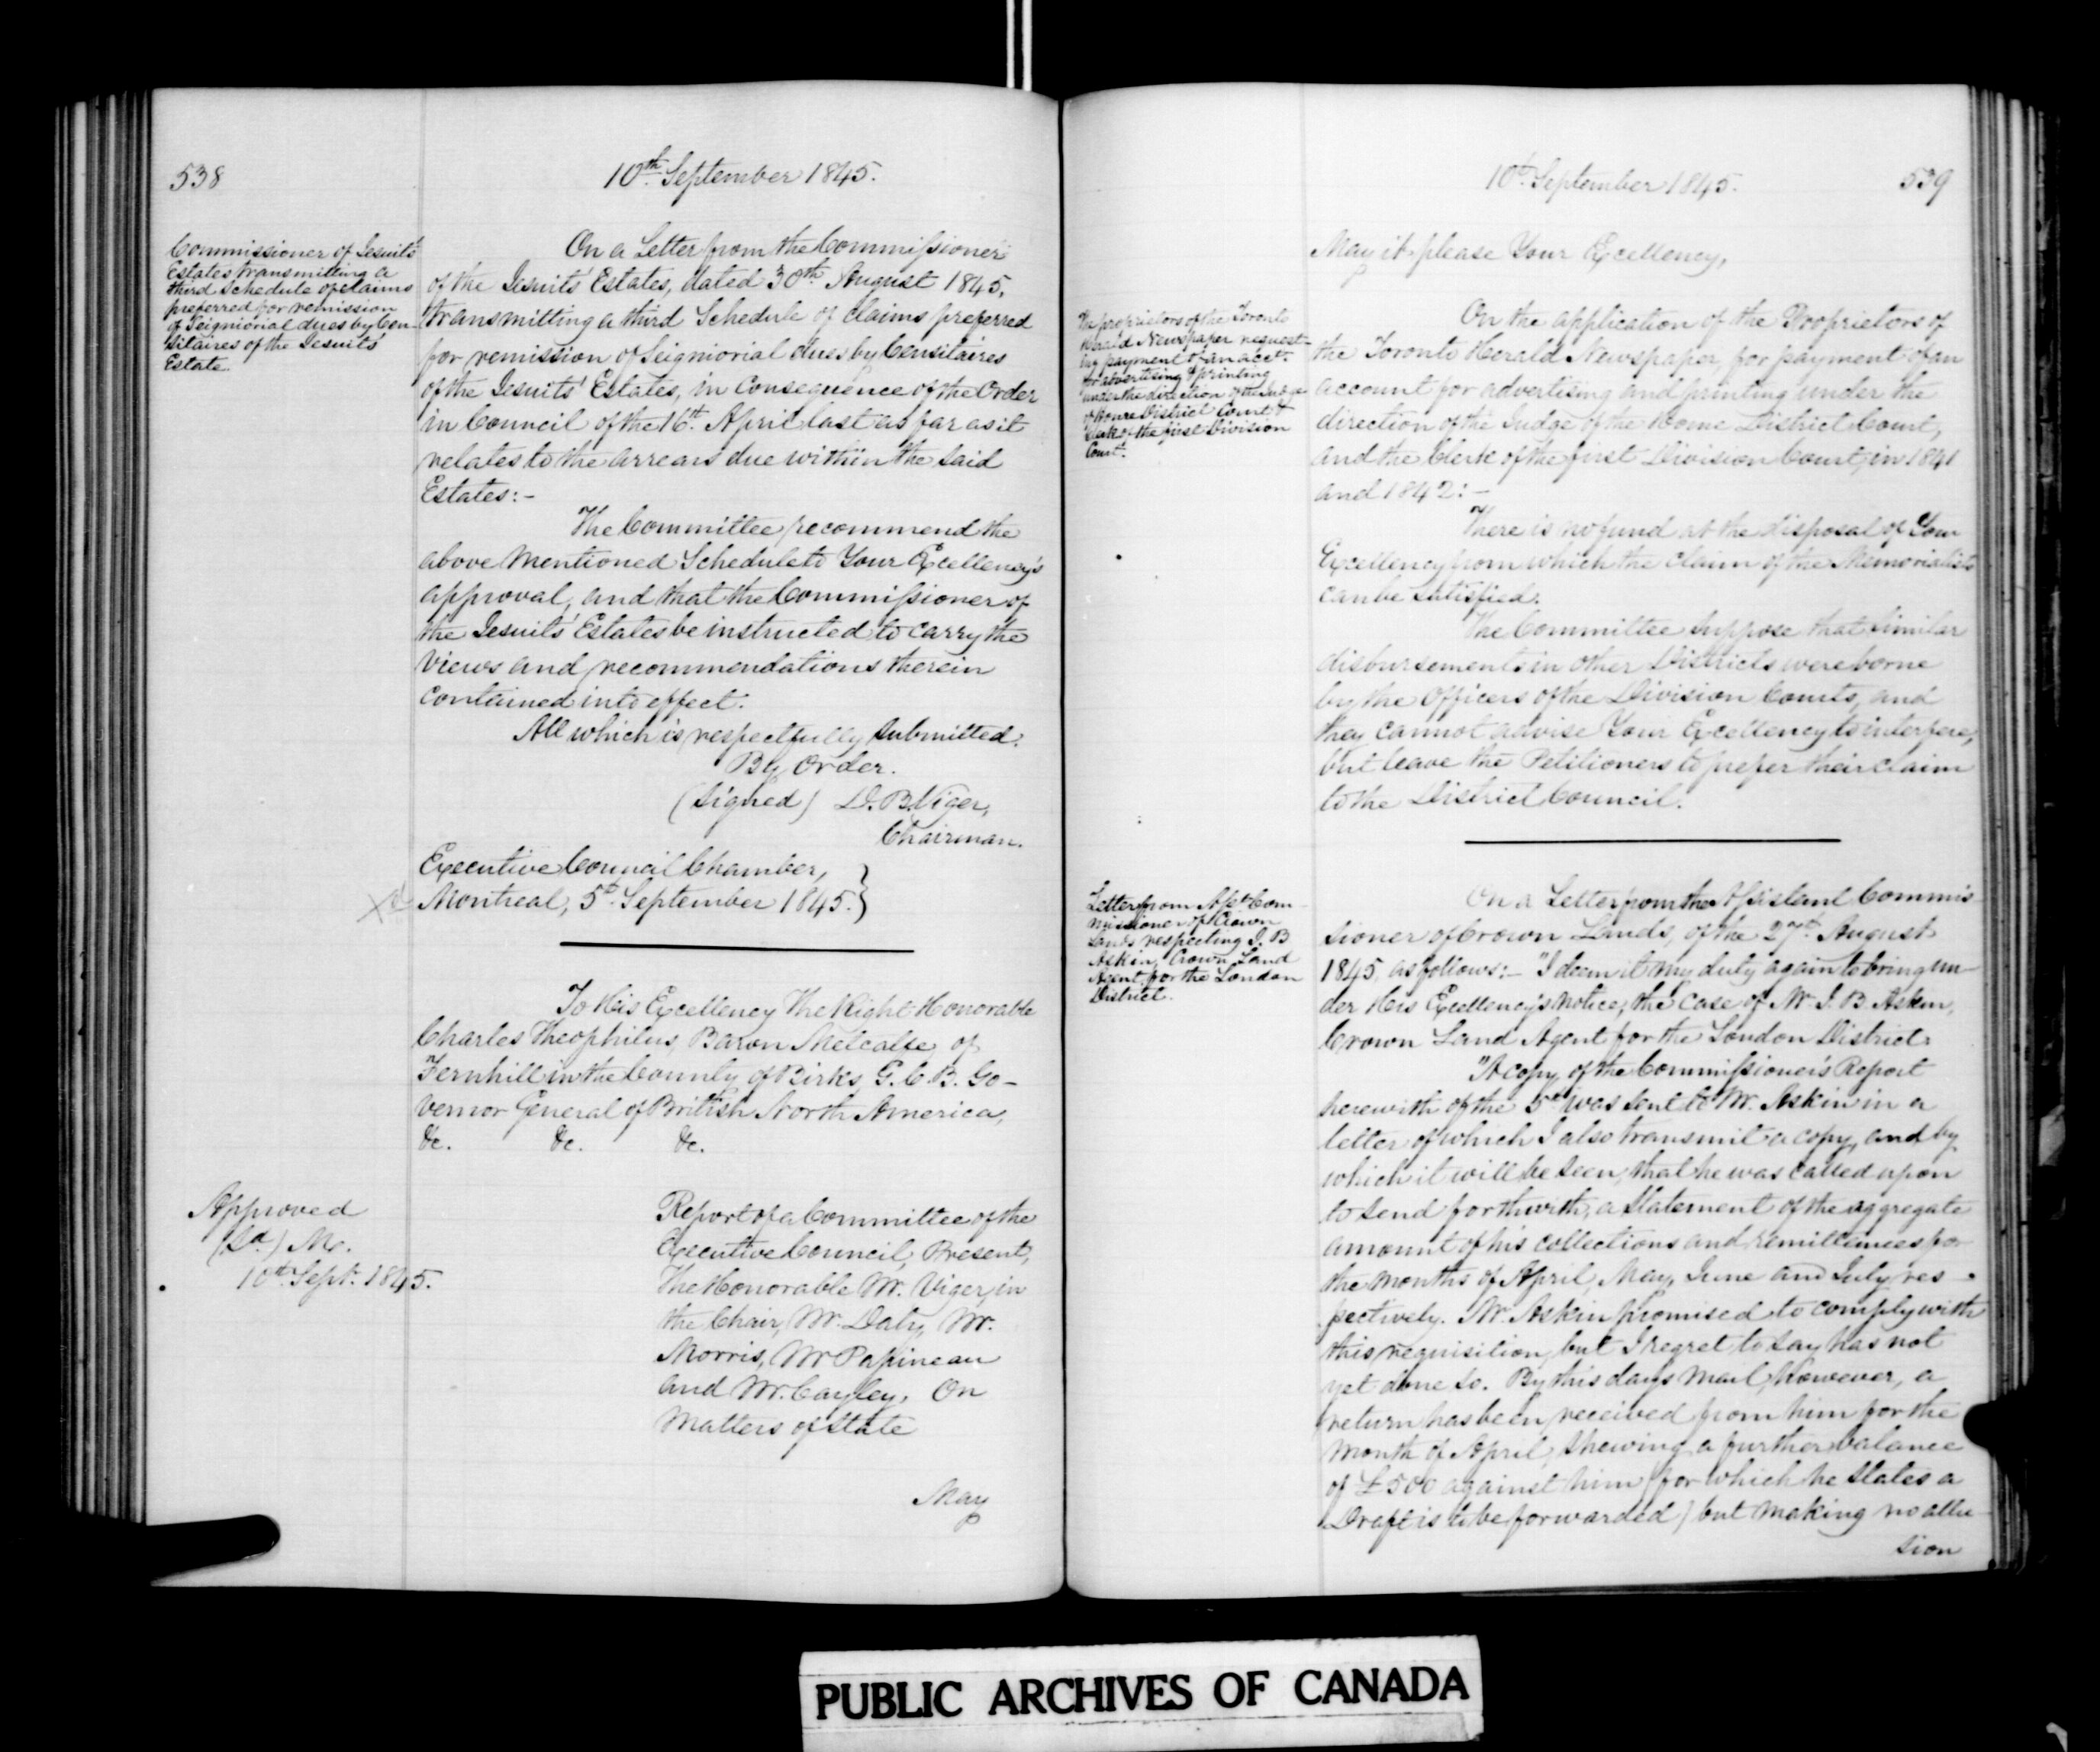 538
10th September 1845.
Commissioner of Jesuits'
Estates transmitting a
third Schedule of claims
preferred for remission
of Seigniorial dues by Cen-
sitaires of the Jesuits'
Estate.
On a Letter from the Commissioner
of the Jesuits' Estates, dated 30th August 1845,
transmitting a third Schedule of claims preferred
for remission of Seigniorial dues by Censitaires
of the Jesuits' Estates, in consequence of the Order
in Council of the 16th April last as far as it
relates to the arrears due within the said
Estates:-
The Committee recommend the
above mentioned Schedule to Your Excellency's
approval, and that the Commissioner of
the Jesuits' Estates be instructed to carry the
views and recommendations therein
contained into effect.
All which is respectfully submitted.
By Order.
(Signed) D. B. Viger,
Chairman.
Executive Council Chamber,
Montreal, 5th September 1845.}
To His Excellency The Right Honorable
Charles Theophilus, Baron Metcalfe, of
Fernhill in the County of Birks, G.C.B. Go-
vernor General of British North America,
&c. &c. &c.
Approved
(Sd.) M.
10th Sept. 1845.
Report of a Committee of the
Executive Council, Present,
The Honorable Mr. Viger, in
the Chair, Mr. Daly, Mr.
Morris, Mr Papineau
and Mr. Cayley, On
Matters of State
May
10th September 1845.
539
May it please Your Excellency,
The proprietors of the Toronto
Herald Newspaper request-
ing payment of an acct.
for advertising & printing
under the direction of the Judge
of Home District Court &
Clerk of the first Division
Court.
On the application of the Proprietors of
the Toronto Herald Newspaper, for payment of an
account for advertising and printing under the
direction of the Judge of the Home District Court,
and the Clerk of the first Division Court, in 1841
and 1842:-
There is no fund at the disposal of Your
Excellency from which the claim of the Memorialists
can be satisfied.
The Committee suppose that similar
disbursements in other Districts were borne
by the Officers of the Division Courts, and
they cannot advise Your Excellency to interfere,
but leave the Petitioners to prefer their claim
to the District Council.
Letter from Asst Com-
missioner of Crown
Lands respecting J. B
Askin, Crown Land
Agent for the London
District.
On a Letter from the Assistant Commis-
sioner of Crown Lands, of the 27th August
1845, as follows:- "I deem it my duty again to bring un-
der His Excellency's notice, the case of Mr J. B. Askin,
Crown Land Agent for the London District.
"A copy of the Commissioner's Report
herewith of the 5th was sent to Mr. Askin in a
letter of which I also transmit a copy, and by
which it will be seen, that he was called upon
to send forthwith, a Statement of the aggregate
amount of his collections and remittances for
the months of April, May, June and July res-
pectively. Mr. Askin promised to comply with
this requisition, but I regret to say has not
yet done so. By this days mail, however, a
return has been received from him for the
month of April, shewing a further balance
of £500 against him (for which he states a
Draft is to be forwarded) but making no allu-
sion
PUBLIC ARCHIVES OF CANADA